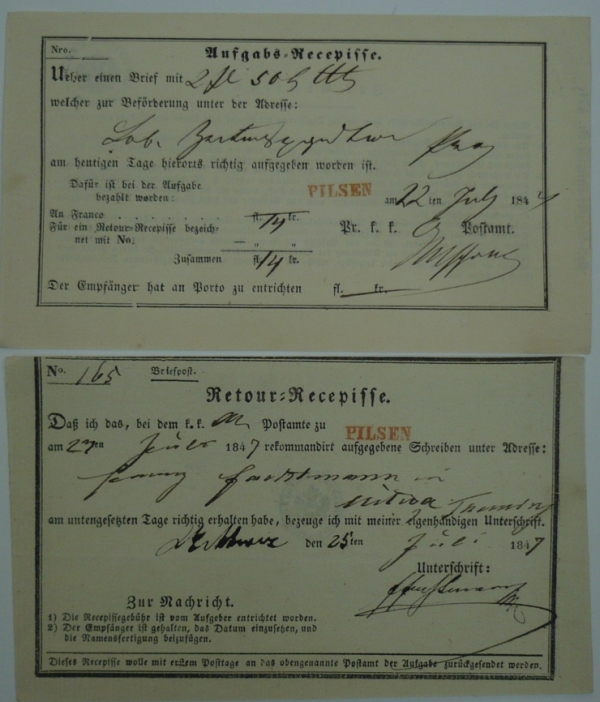 Nro.
Aufgabs-Recepisse.
Ueber einen Brief mit 2 fl 50
welcher zur Beförderung unter der Adresse:
am heutigen Tage hierorts richtig aufgegeben worden ist.
Dafür ist bei der Aufgabe
bezahlt worden:
PILSEN
am 22 ten July 184
An Franco . . . . . . . fl. 14 kr.
Für ein Retour-Recepisse bezeich-
net mit No. — „ „
Pr. k. k. Postamt.
Zusammen fl. 14 kr.
Der Empfänger hat an Porto zu entrichten fl. kr.
No. 165 Briefpost.
Retour-Recepisse.
Daß ich das, bei dem k. k. Postamte zu PILSEN
am ten Juli 1847 rekommandirt aufgegebene Schreiben unter Adresse:
in
am untengesetzten Tage richtig erhalten habe, bezeuge ich mit meiner eigenhändigen Unterschrift.
den 25ten Juli 1847
Unterschrift:
Zur Nachricht.
1) Die Recepissegebühr ist vom Aufgeber entrichtet worden.
2) Der Empfänger ist gehalten, das Datum einzusetzen, und
die Namensfertigung beizufügen.
Dieses Recepisse wolle mit erstem Posttage an das obengenannte Postamt der Aufgabe zurückgesendet werden.